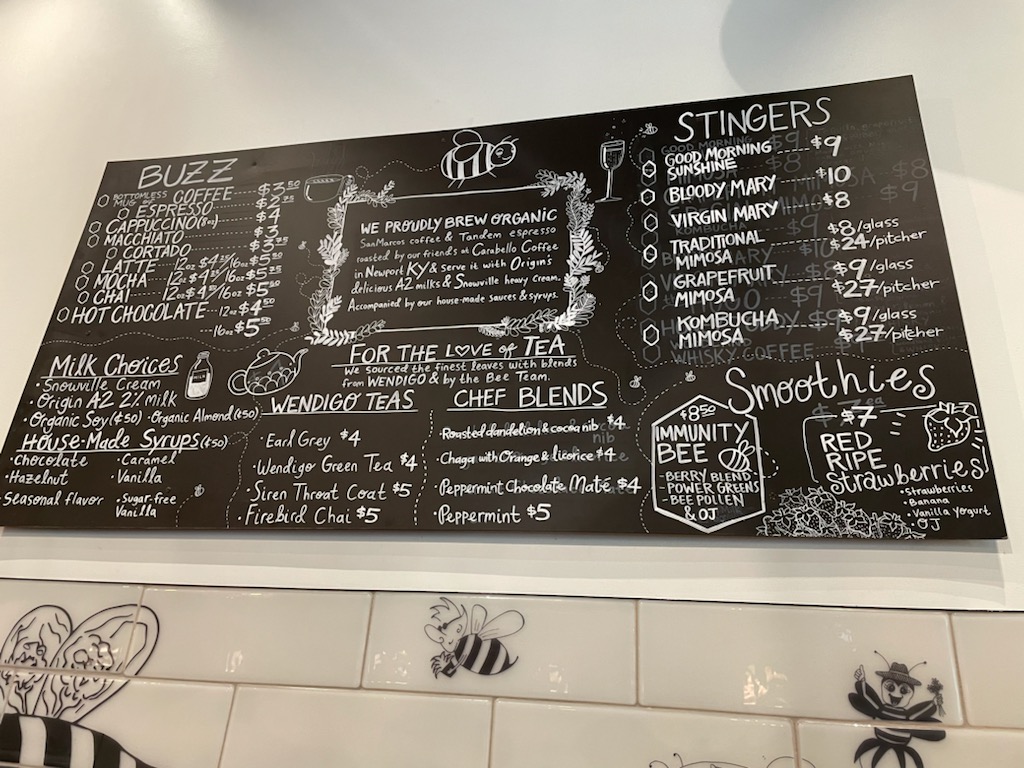 BUZZ
BOTTOMLESS MUG OF COFFEE $3.50
ESPRESSO $2.75
CAPPUCCINO (8oz) $4
MACCHIATO $3
CORTADO $3.75
LATTE 12oz $4.25/16oz $5.50
MOCHA 12oz $4.25/16oz $5.75
CHAI 12oz $4.25/16oz $5.50
HOT CHOCOLATE 12oz $4.50
16oz $5.50
Milk Choices
• Snowville Cream
• Origin A2 2% Milk
• Organic Soy (+50) • Organic Almond (+50)
House-Made Syrups (+50)
• Chocolate • Caramel
• Hazelnut • Vanilla
Seasonal flavor • Sugar-free
Vanilla
WE PROUDLY BREW ORGANIC
SanMarcos coffee & Tandem espresso
roasted by our friends at Carabello Coffee
in Newport KY & serve it with Origin's
delicious A2 milks & Snowville heavy cream.
Accompanied by our house-made sauces & syrups.
FOR THE LOVE of TEA
We sourced the finest leaves with blends
from WENDIGO & by the Bee Team.
WENDIGO TEAS
• Earl Grey $4
• Wendigo Green Tea $4
• Siren Throat Coat $5
• Firebird Chai $5
CHEF BLENDS
• Roasted dandelion & cocoa nib $4
• Chaga with Orange & licorice $4
• Peppermint Chocolate Maté $4
• Peppermint $5
STINGERS
GOOD MORNING $9
SUNSHINE
BLOODY MARY $10
VIRGIN MARY $8
TRADITIONAL $8/glass
MIMOSA $24/pitcher
GRAPEFRUIT $9/glass
MIMOSA $27/pitcher
KOMBUCHA $9/glass
MIMOSA $27/pitcher
WHISKY COFFEE
Smoothies
$8.50
IMMUNITY
BEE
- BERRY BLEND
- POWER GREENS
- BEE POLLEN
& OJ
$7
RED
RIPE
strawberries!
• Strawberries
• Banana
• Vanilla Yogurt
• OJ